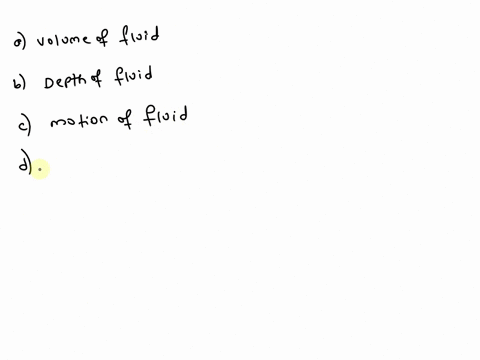 a) volume of fluid
b) Depth of fluid
c) motion of fluid
d)